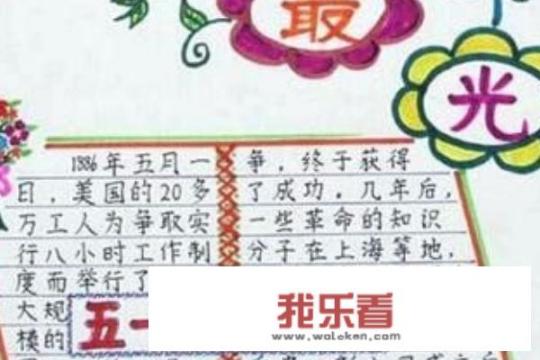 最
光
1886年五月一
日，美国的20多
万工人为争取实
行八小时工作制
度而举行了
大规
模的
五一
争，终于获得
了成功。几年后，
一些革命的知识
分子在上海等地，
我乐看
www.woleken.com